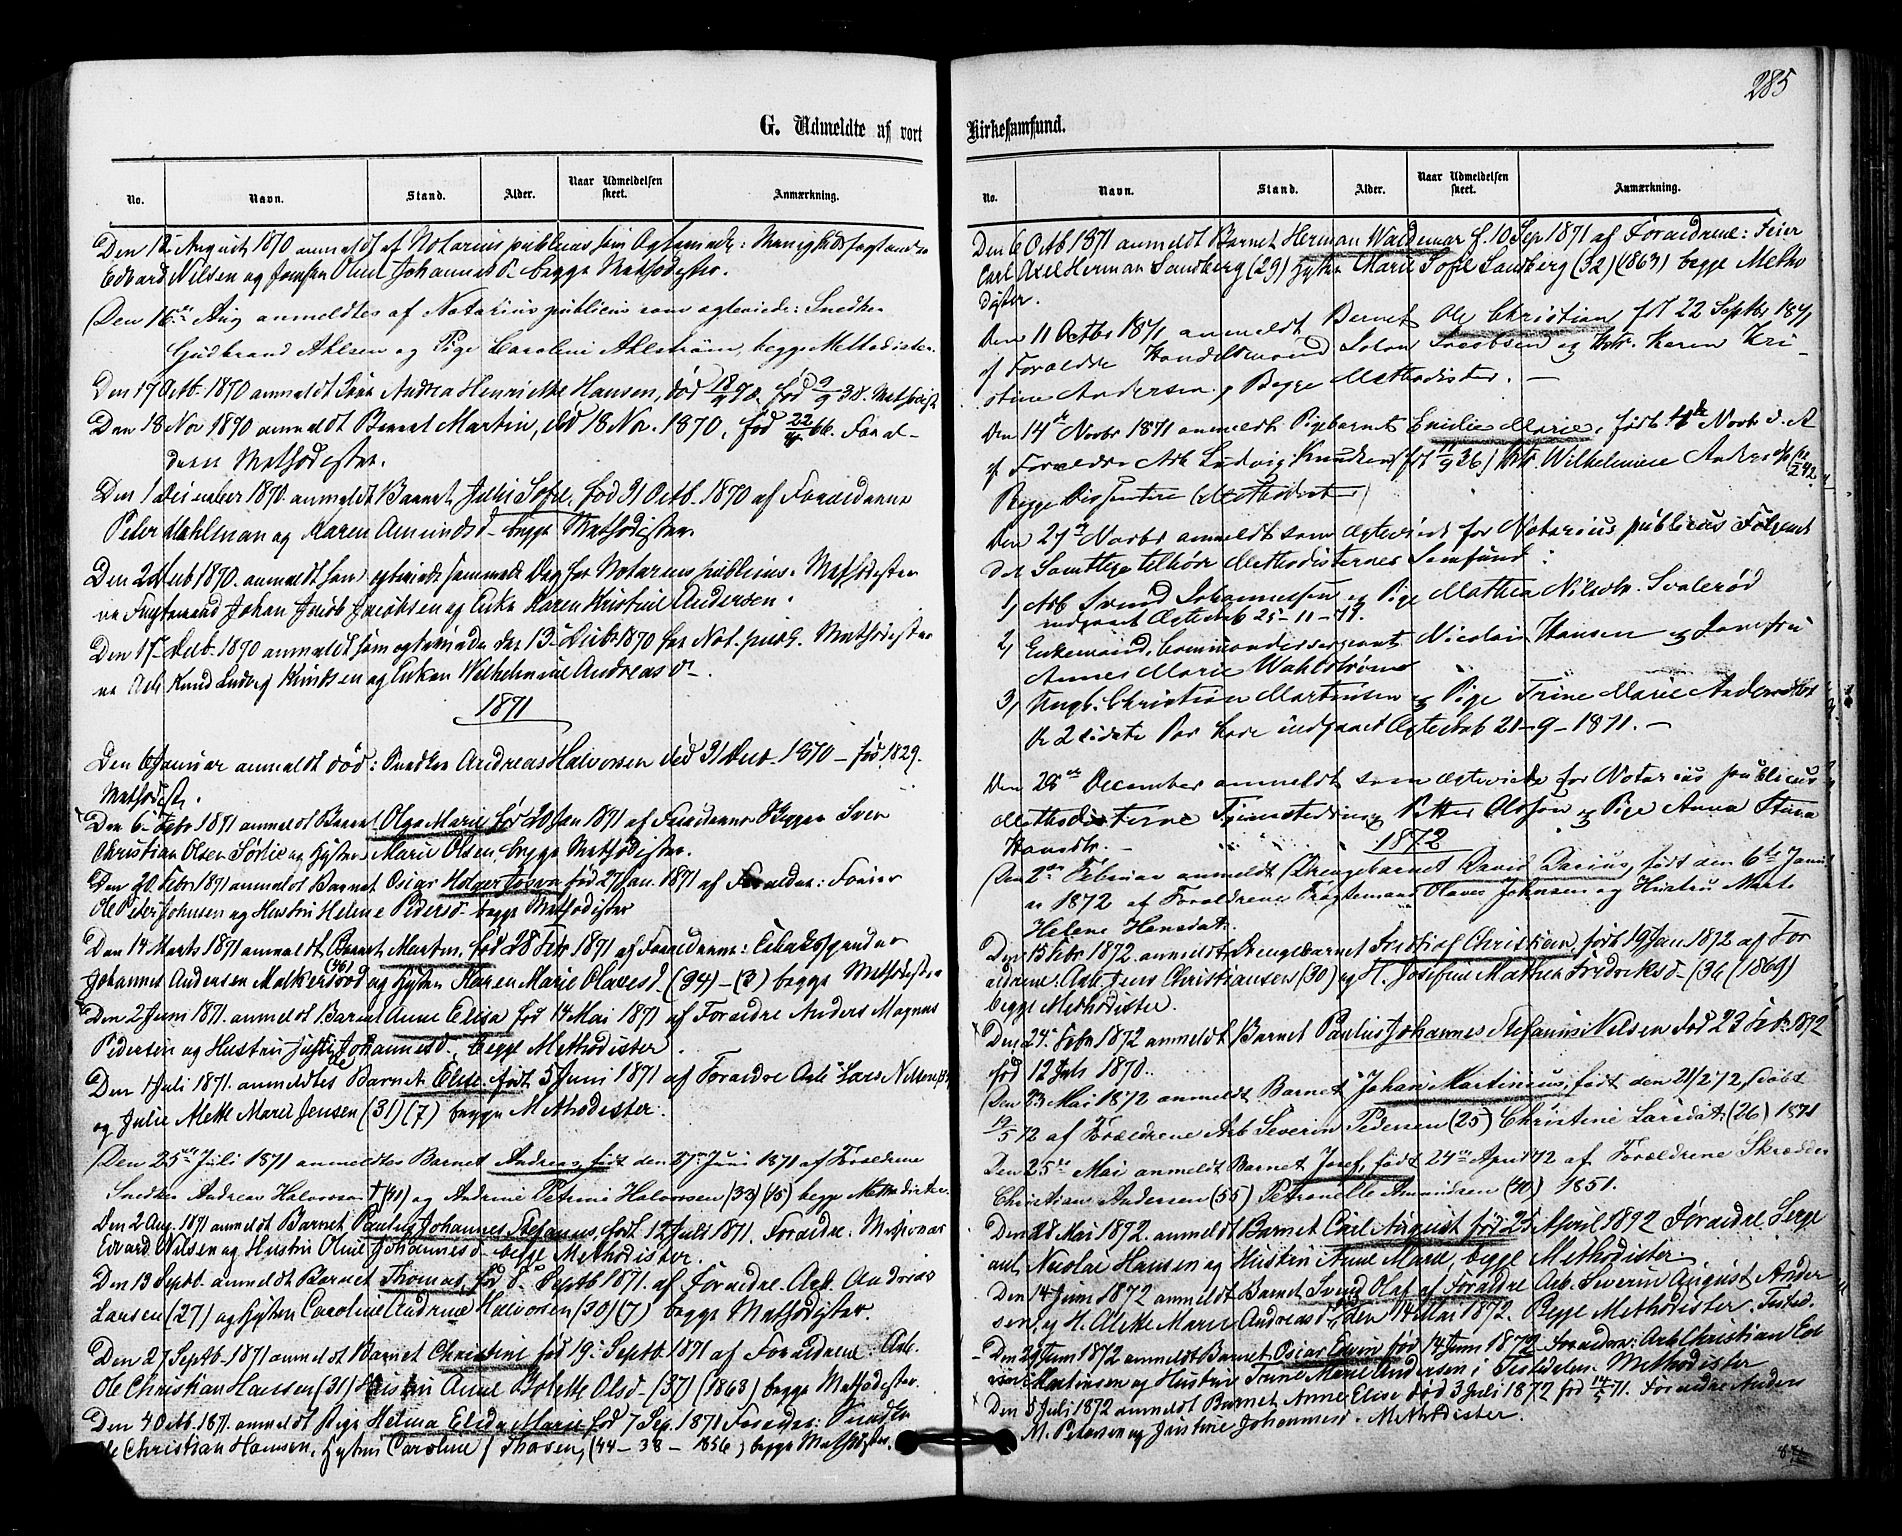 285
G. Udmeldte af vort
No. Navn. Stand. Alder. Naar Udmeldelsen skeet. Anmærkning.
Den 12 August 1870 anmeldt af Notarius publicus som Ægteviede:
Edvard Nilsen og Olme Johannesd. begge Methodister.
Den 16de Aug anmeldtes af Notarius publicus som ægteviede: Snedker
Gudbrand Ahlsen og Pige Caroline Ahlstrøm, begge Methodister.
Den 17 Octb. 1870 anmeldt Andrea Henriette Hansen, død 18/9 70, født 9/9 38. Methodist
Den 18 Nov 1870 anmeldt Barnet Martin, død 18 Nov. 1870, fød 22/4 66. Foræl-
drene Methodister.
Den 1 December 1870. anmeldt Barnet Julie Sofie, fød 31 Octb. 1870 af Forældrene
Peter Wahlman og Karen Amundsd. begge Methodister.
Den 2 Decb 1870. anmeldt som egteviede samme Dag for Notarius publicus. Methodister
ne Johan Jacob Jacobsen og Enke Karen Kristine Andersen.
Den 17 Decb. 1870 anmeldt som egteviede den 13 Decbr 1870 for Not. publ. Methodister
ne Arb Knud Ludvig Knudsen og Enken Wilhelmine Andreasd.
1871
Den 6 Januar anmeldt død: Snedker Andreas Halvorsen død 31 Decb. 1870 – fød 1829.
Methodist.
Den 6 Febr 1871 anmeldt Barnet Olga Marie fød 20 Jan 1871 af Forældrene Sven
Christian Olsen Sørlie og Hustru Marie Olsen, begge Methodister.
Den 20. Febr 1871 anmeldt Barnet Oscar Holger fød 27 Jan. 1871 af Forældre: Feier
Ole Peter Johnsen og Hustru Helene Pedersd. begge Methodister
Den 14 Marts 1871 anmeldt Barnet Martin, fød 28 Febr 1871 af Forældrene:
Johannes Andersen (46) og Hustru Karen Marie Olavesd. (34) – (3) begge Methodister
Den 2 Juni 1871. anmeldt Barnet Anne Elise fød 14 Mai 1871 af Forældre Anders Magnus
Pedersen og Hustru Johannesd. begge Methodister.
Den 1 Juli 1871. anmeldtes Barnet Elise. født 5 Juni 1871 af Forældre Arb Lars Nilsen
og Julie Alette Marie Jensen (31) (7) begge Methodister.
Den 25de Juli 1871 anmeldtes Barnet Andreas, født den 27 Juni 1871 af Forældrene
Snedker Andreas Halvorsen † (41) og Andrine Petrine Halvorsen (33) begge Methodister.
Den 2 Aug. 1871 anmeldt Barnet Paulus Johannes Stefanus, født 12 Juli 1871. Forældre: Missionær
Edvard Nilsen og Hustru Oline Johannesd. begge Methodister.
Den 13 Septb. anmeldt Barnet Thomas, fød 5 Septb 1871. af Forældre. Arb. Andreas
Larsen (27) og Hustru Caroline Andrine Halvorsen (30) (7) begge Methodister.
Den 27 Septb. 1871 anmeldt Barnet Christine fød 19 Septb. 1871 af Forældrene Arb.
Ole Christian Hansen (31) Hustru Anne Bolette Olsd. (37) (1863) begge Methodister.
Den 4 Octb. 1871. anmeldt Pige Helma Elida Marie fød 7 Sep. 1871 Forældre: Snedker
Ole Christian Hansen, Hustru Caroline f Thosen, (44 – 38 – 1856) begge Methodister.
Kirkesamfund.
No. Navn. Stand. Alder. Naar Udmeldelsen skeet. Anmærkning.
Den 6 Octb 1871 anmeldt Barnet Herman Waldemar f. 10 Sep 1871 af Forældrene: Feier
Carl Axel Herman Sandberg (29) Hustru Marie Sofie Sandberg (32) (1863) begge Metho
dister.
Den 11 Octbr 1871 anmeldt Barnet Ole Christian født 22 Septbr 1871
af Forældre Handelsmand Johan Jacobsen og Hstr. Karen Kri-
stine Andersen. Begge Methodister. —
Den 14de Novbr 1871 anmeldt Pigebarnet Emilie Marie, født 4de Novbr d. A
af Forældre Arb Ludvig Knudsen født 11/9 36) Hstr. Wilhelmine
Begge Dissentere (Methodister)
Den 27de Novbr anmeldt som Ægteviede for Notarius publicus Følgende
der Samtlige tilhøre Methodisternes Samfund:
1) Arb Svend Johannessen og Pige Mathea Nilsdtr. Svalerød
indgaaet Ægteskab 25–11–71.
2) Enkemand, Commandersergeant Nicolai Hansen og Jomfru
Anne Marie Wahlstrøm
3) Ungk. Christian Martinsen og Pige Trine Marie Andersdtr
De 2 sidste Par have indgaaet Ægteskab 21–9–1871. —
Den 28de December anmeldt som Ægteviede for Notarius publicus
Methodisterne Petter Olsson og Pige Anna Stina
Hansdtr. —
1872
Den 2den Februar anmeldt Drengebarnet David Darius, født den 6te Janu
ar 1872 af Forældrene Fragtemand Olaves Johnsen og Hustru Marte
Helene Hansdatr.
Den 15 Febr 1872. anmeldt Drengebarnet Christian, født 19 Jan. 1872 af For
ældrene. Arb. Jens Christiansen (30) og H. Josefine Mathea Fredriksd. (36 (1869)
begge Methodister.
Den 24. Febr 1872 anmeldt Barnet Paulus Johannes Stefanus Nilsen død 23 Feb. 1872
født 12 Juli 1870.
Den 23 Mai 1872 anmeldt Barnet Johan Martinius, født den 21/2 72, døbt
19/5 72 af Forældrene Arb Severin Pedersen (25) Christine Larsdat. (26) 1871
Den 25de Mai anmeldt Barnet Josef, født 24de April 72 af Forældrene Skrædder
Christian Andersen (55) Petronelle Amundsen (40) 1851.
Den 28 Mai 1872. anmeldt Barnet Carl August fød 21 April 1872 Forældre Serge
ant Nicolai Hansen og Hustru Anne Marie, begge Methodister.
Den 14 Juni 1872 anmeldt Barnet Svend Olaf af Forældre Arb. Severin August Ander
sen og H. Alette Marie Andreasd. født den 14 Mai 1872. Begge Methodister. Tistedl.
Den 29 Juni 1872 anmeldt Barnet Oscar Edvin fød 14 Juni 1872 Forældre: Arb. Christian
Martinsen og Hustru Trine Marie Andersen i Tistedalen. Methodister
Den 5 Juli 1872 anmeldt Barnet Anne Elise død 3 Juli 1872 fød 14/5 71. Forældre Anders
M. Petersen og Justine Johannesd. Methodister.